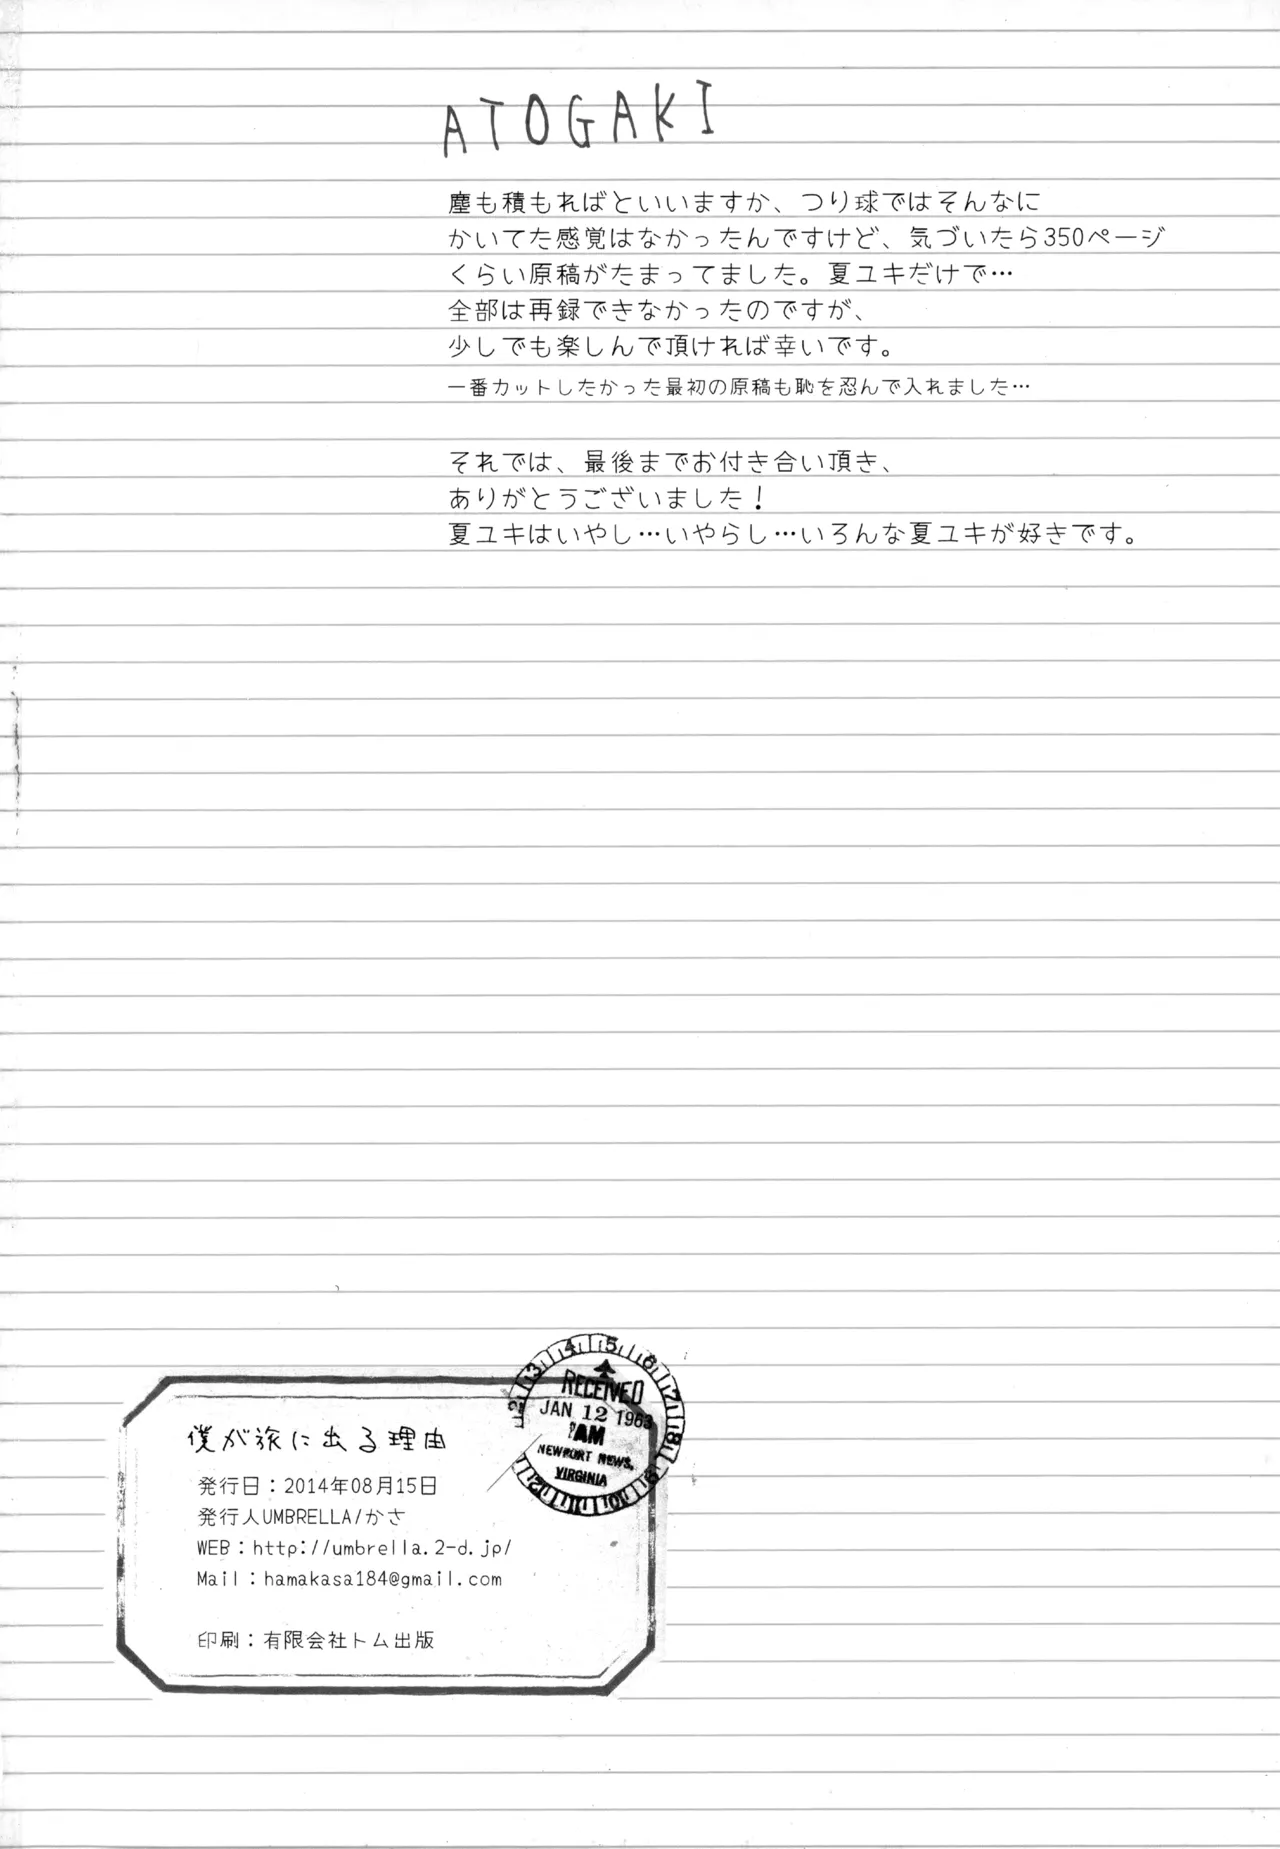 ATOGAKI
塵も積もればといいますか、つり球ではそんなに
かいてた感覚はなかったんですけど、気づいたら350ページ
くらい原稿がたまってました。夏ユキだけで…
全部は再録できなかったのですが、
少しでも楽しんで頂ければ幸いです。
一番カットしたかった最初の原稿も恥を忍んで入れました…
それでは、最後までお付き合い頂き、
ありがとうございました！
夏ユキはいやし…いやらし…いろんな夏ユキが好きです。
僕が旅に出る理由
発行日：2014年08月15日
発行人UMBRELLA/かさ
WEB：http://umbrella.2-d.jp/
Mail：hamakasa184@gmail.com
印刷：有限会社トム出版
2 3 4 5 6 7 8 9 10 11 12
RECEIVED
JAN 12 1963
AM
NEWPORT NEWS,
VIRGINIA